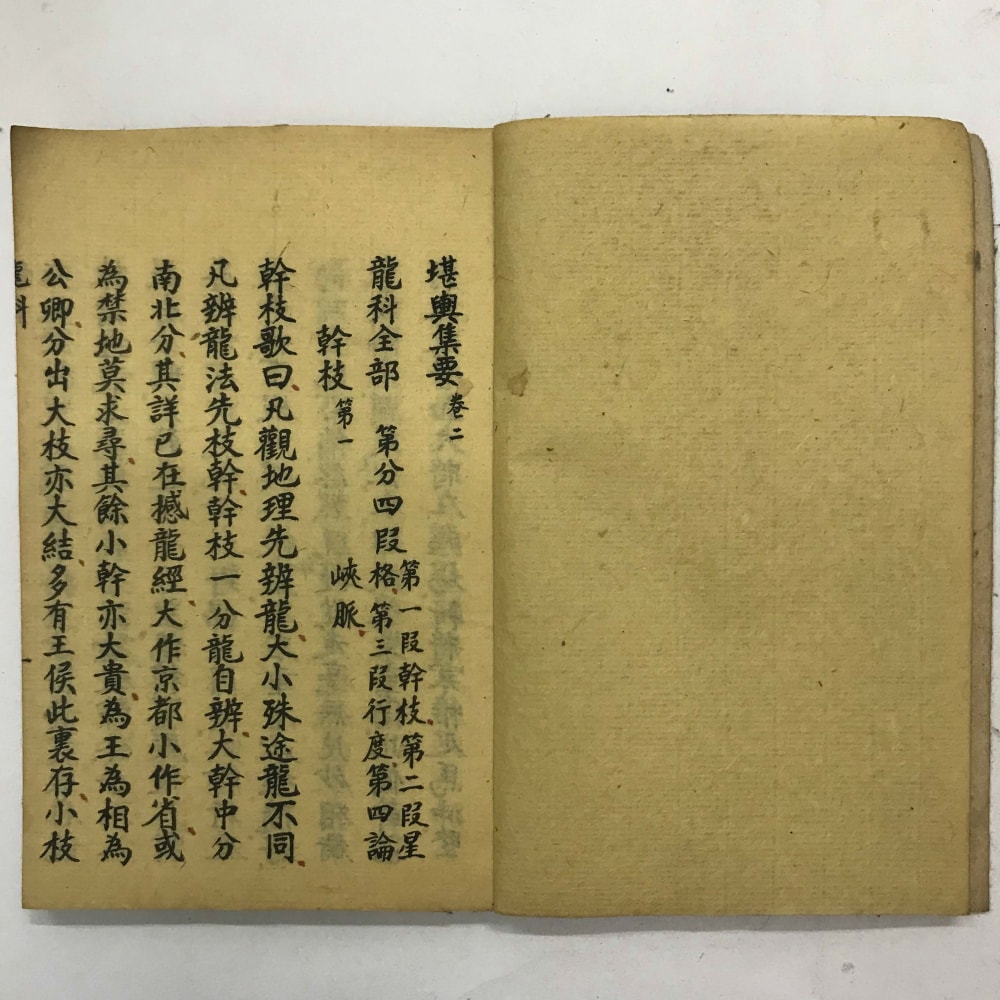 堪輿集要 卷二
龍科全部 第分四段 第一段幹枝第二段星
格第三段行度第四論
峽脈
幹枝 第一
幹枝歌曰凡觀地理先辨龍大小殊途龍不同
凡辨龍法先枝幹幹枝一分龍自辨大幹中分
南北分其詳已在撼龍經大作京都小作省或
為禁地莫求尋其餘小幹亦大貴為王為相為
公卿分出大枝亦大結多有王侯此裏存小枝
龍科 一